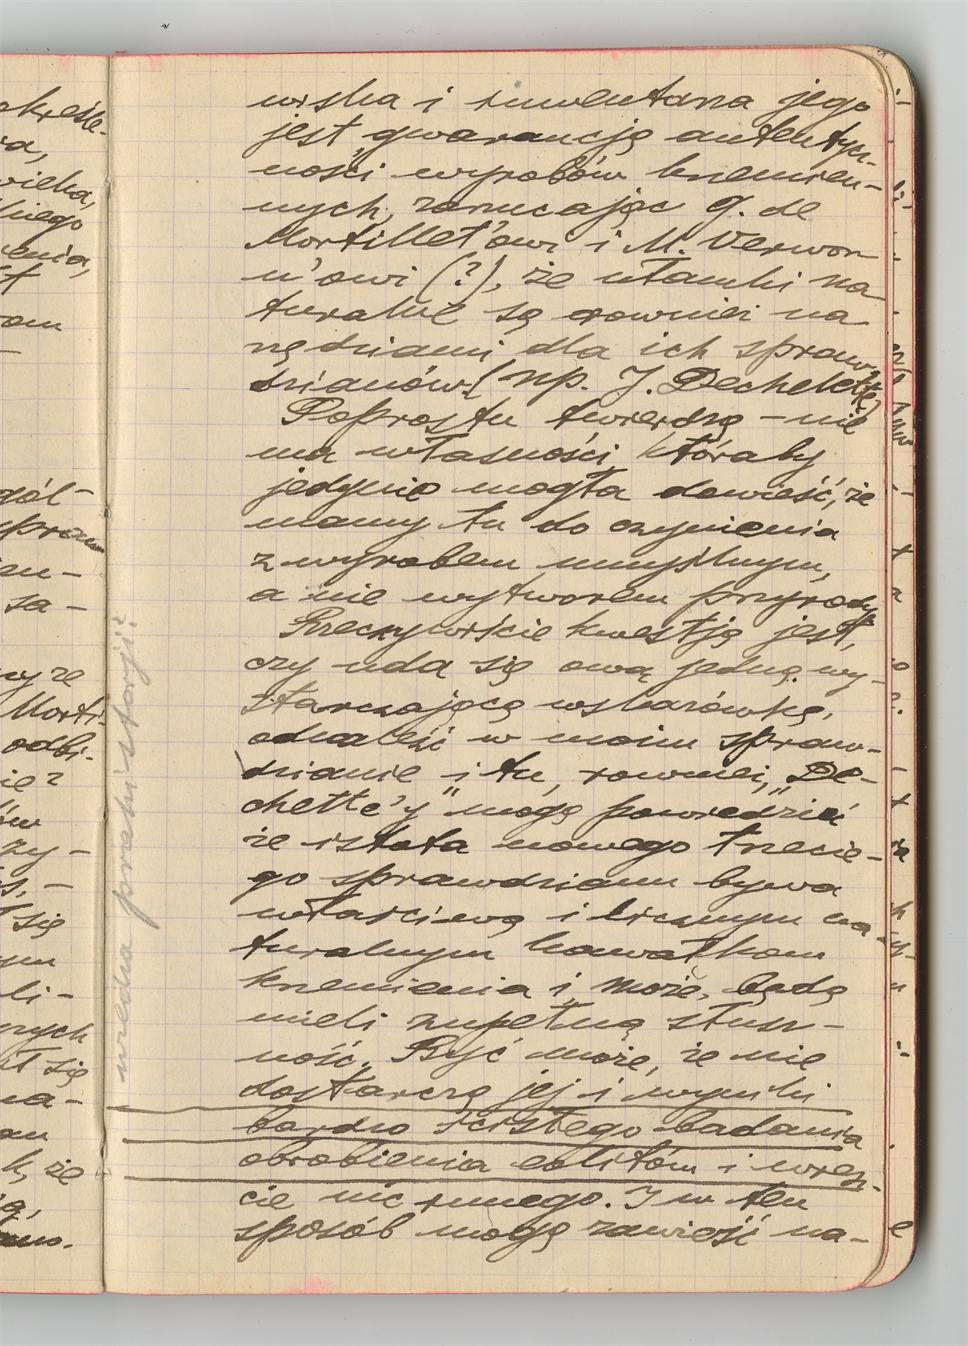 wiska i inwentarza jego
jest gwarancją autentycz-
ności wyrobów krzemien-
nych, zarzucając G. de
Mortillet'owi i M. Verwor
n'owi (?), że ułamki na
turalne są również na
rzędziami dla ich spraw-
dzianów (np. J. Dechelette)
Poprostu twierdzą – nie
ma własności któraby
jedynie mogła dowieść, że
mamy tu do czynienia
z wyrobem umyślnym,
a nie wytworem przyrody.
Rzeczywiście kwestją jest,
czy uda się ową jedną wy-
starczającą wskazówkę,
odnaleść w moim spraw-
dzianie i tu, również, „De-
chette'y" mogą powiedzieć
że istota nowego trzecie-
go sprawdzianu bywa
właściwą i licznym na
turalnym kawałkom
krzemienia i, może, będą
mieli zupełną słusz-
ność. Być może, że nie
dostarczą jej i wyniki
bardzo ścisłego badania
obrobienia eolitów i wresz-
cie nic innego. I w ten
sposób mogą zawieść na-
określe-
ra,
wielka,
enia,
gól-
praw
zu-
sa-
wy że
Morti-
odbi-
ie?
zy-
się
li-
nych
ił się
na-
k, że
wiedza prehistorji!